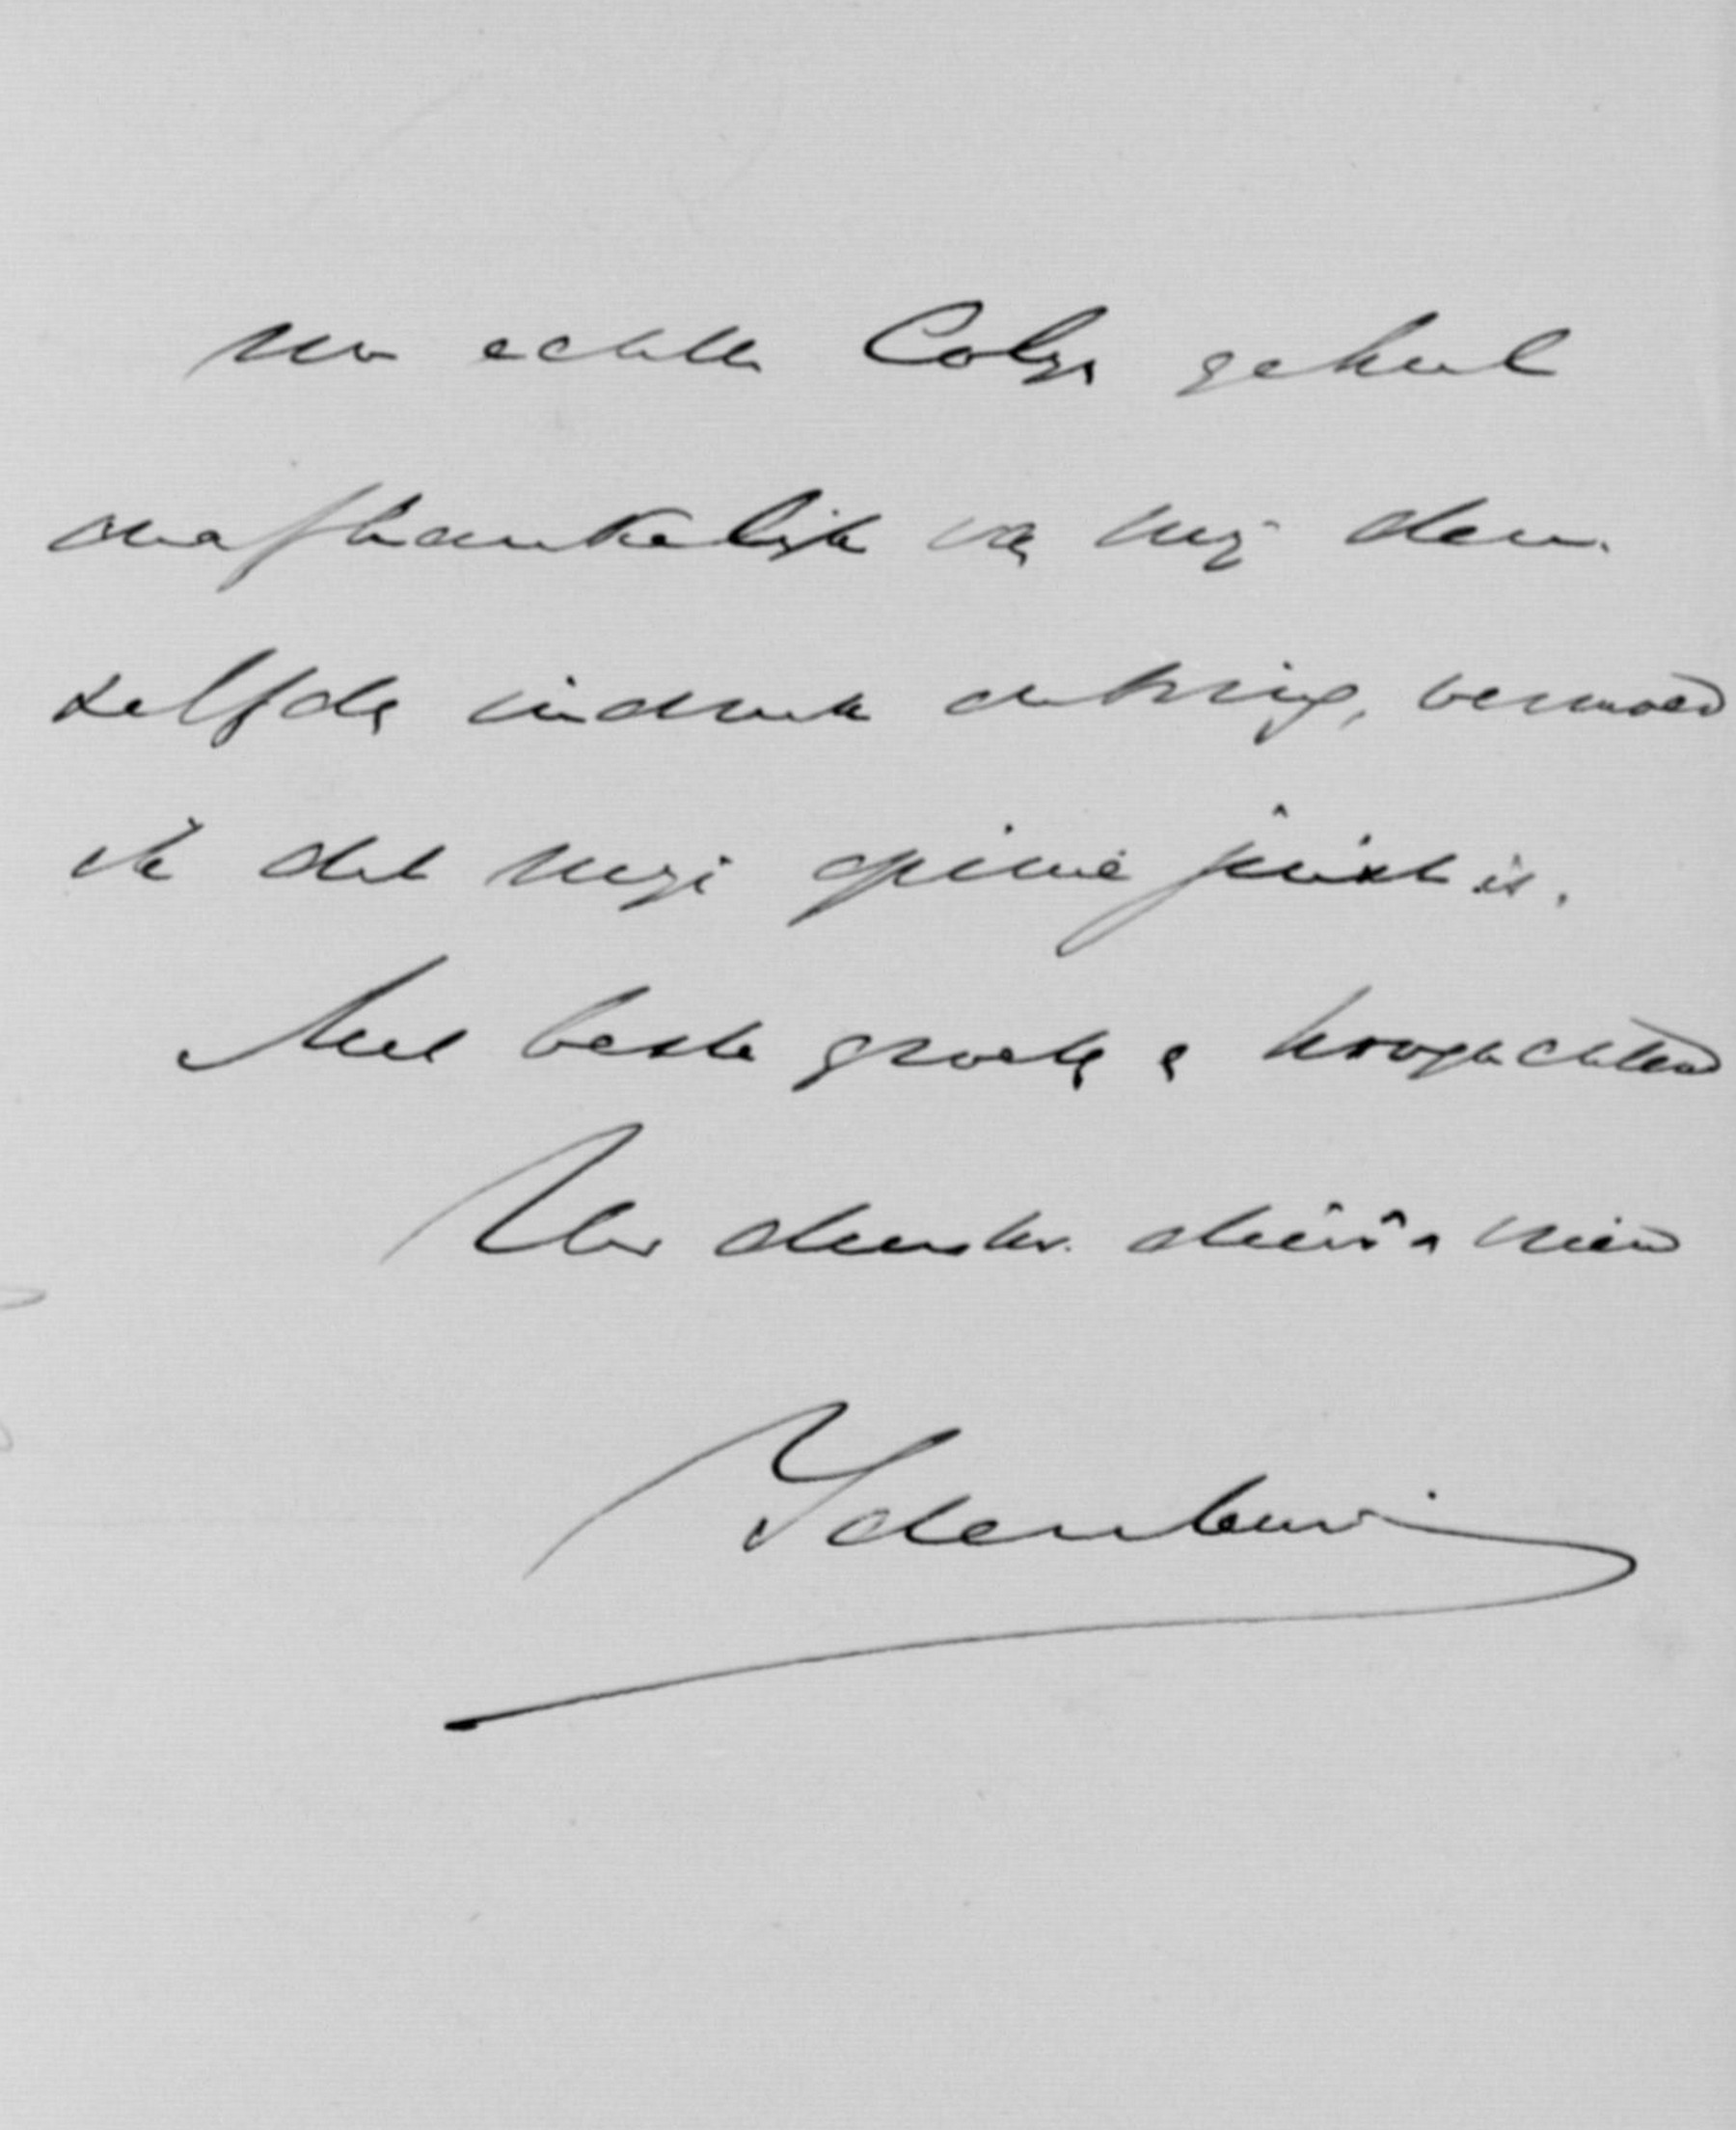 Nu echter Colijn geheel
onafhankelijk van mij den-
zelfden indruk ontving, vermoed
ik dat mijn opinie juist is.
Met beste groeten e hoogachtend
Uw dienstw. dienr en vriend
Idenburg